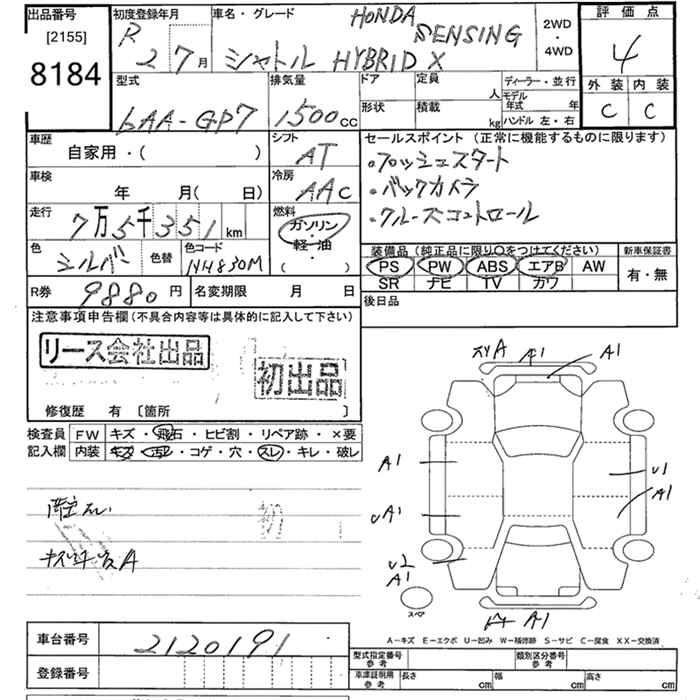 出品番号 [2155] 8184
初度登録年月 R 2 7月
車名・グレード HONDA SENSING
シャトル HYBRID X
2WD ・ 4WD
評価点 4
外装 内装
C C
型式 6AA-GP7
排気量 1500cc
ドア 定員 人
形状 積載 kg
ディーラー・並行
モデル年式 年
ハンドル 左・右
車歴 自家用・( )
シフト AT
車検 年 月( 日)
冷房 AAC
走行 7万5千351km
燃料 ガソリン・軽・油 ( ・ )
色 シルバー 色替 色コード NH830M
R券 9880円 名変期限 月 日
セールスポイント(正常に機能するものに限ります)
・プッシュスタート
・バックカメラ
・クルーズコントロール
装備品(純正品に限り○をつけてください) 新車保証書
PS PW ABS エアB AW 有・無
SR ナビ TV カワ
後日品
注意事項申告欄(不具合内容等は具体的に記入して下さい)
リース会社出品
初出品
修復歴 有 [箇所 ]
検査員 FW キズ・飛石・ヒビ割・リペア跡・×要
記入欄 内装 キズ・汚レ・コゲ・穴・スレ・キレ・破レ
A1 A1
A1 U1
A1
UA1
U2
A1
スペア
A1
A-キズ E-エクボ U-凹み W-補修跡 S-サビ C-腐食 XX-交換済
車台番号 2120191
登録番号
型式指定番号 参考 類別区分番号 参考
車庫証明用 参考 長さ cm 幅 cm 高さ cm